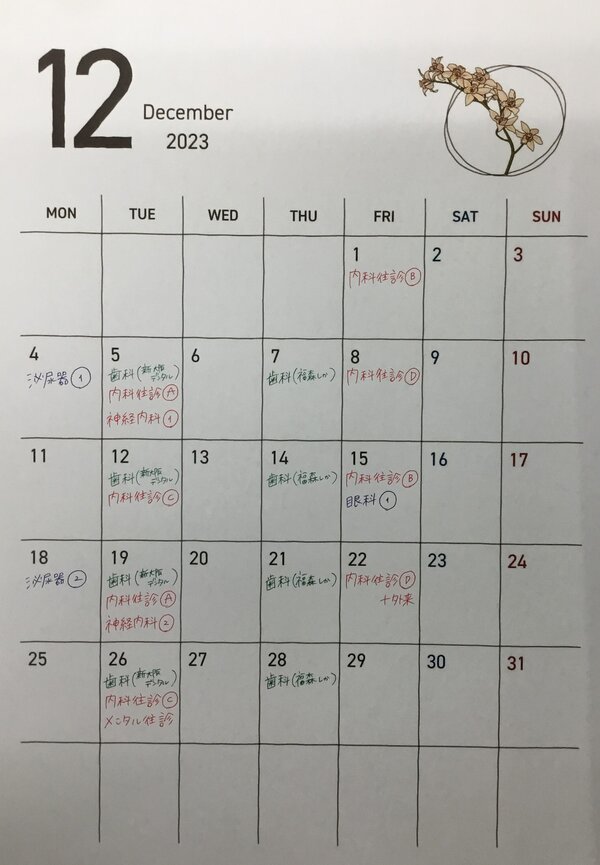 12
December
2023
MON TUE WED THU FRI SAT SUN
1 2 3
内科往診Ⓑ
4 5 6 7 8 9 10
泌尿器①
歯科(新大阪デンタル)
内科往診Ⓐ
神経内科①
歯科(福森しか)
内科往診Ⓓ
11 12 13 14 15 16 17
歯科(新大阪デンタル)
内科往診Ⓒ
歯科(福森しか)
内科往診Ⓑ
眼科①
18 19 20 21 22 23 24
泌尿器②
歯科(新大阪デンタル)
内科往診Ⓐ
神経内科②
歯科(福森しか)
内科往診Ⓓ
+外来
25 26 27 28 29 30 31
歯科(新大阪デンタル)
内科往診Ⓒ
メンタル往診
歯科(福森しか)